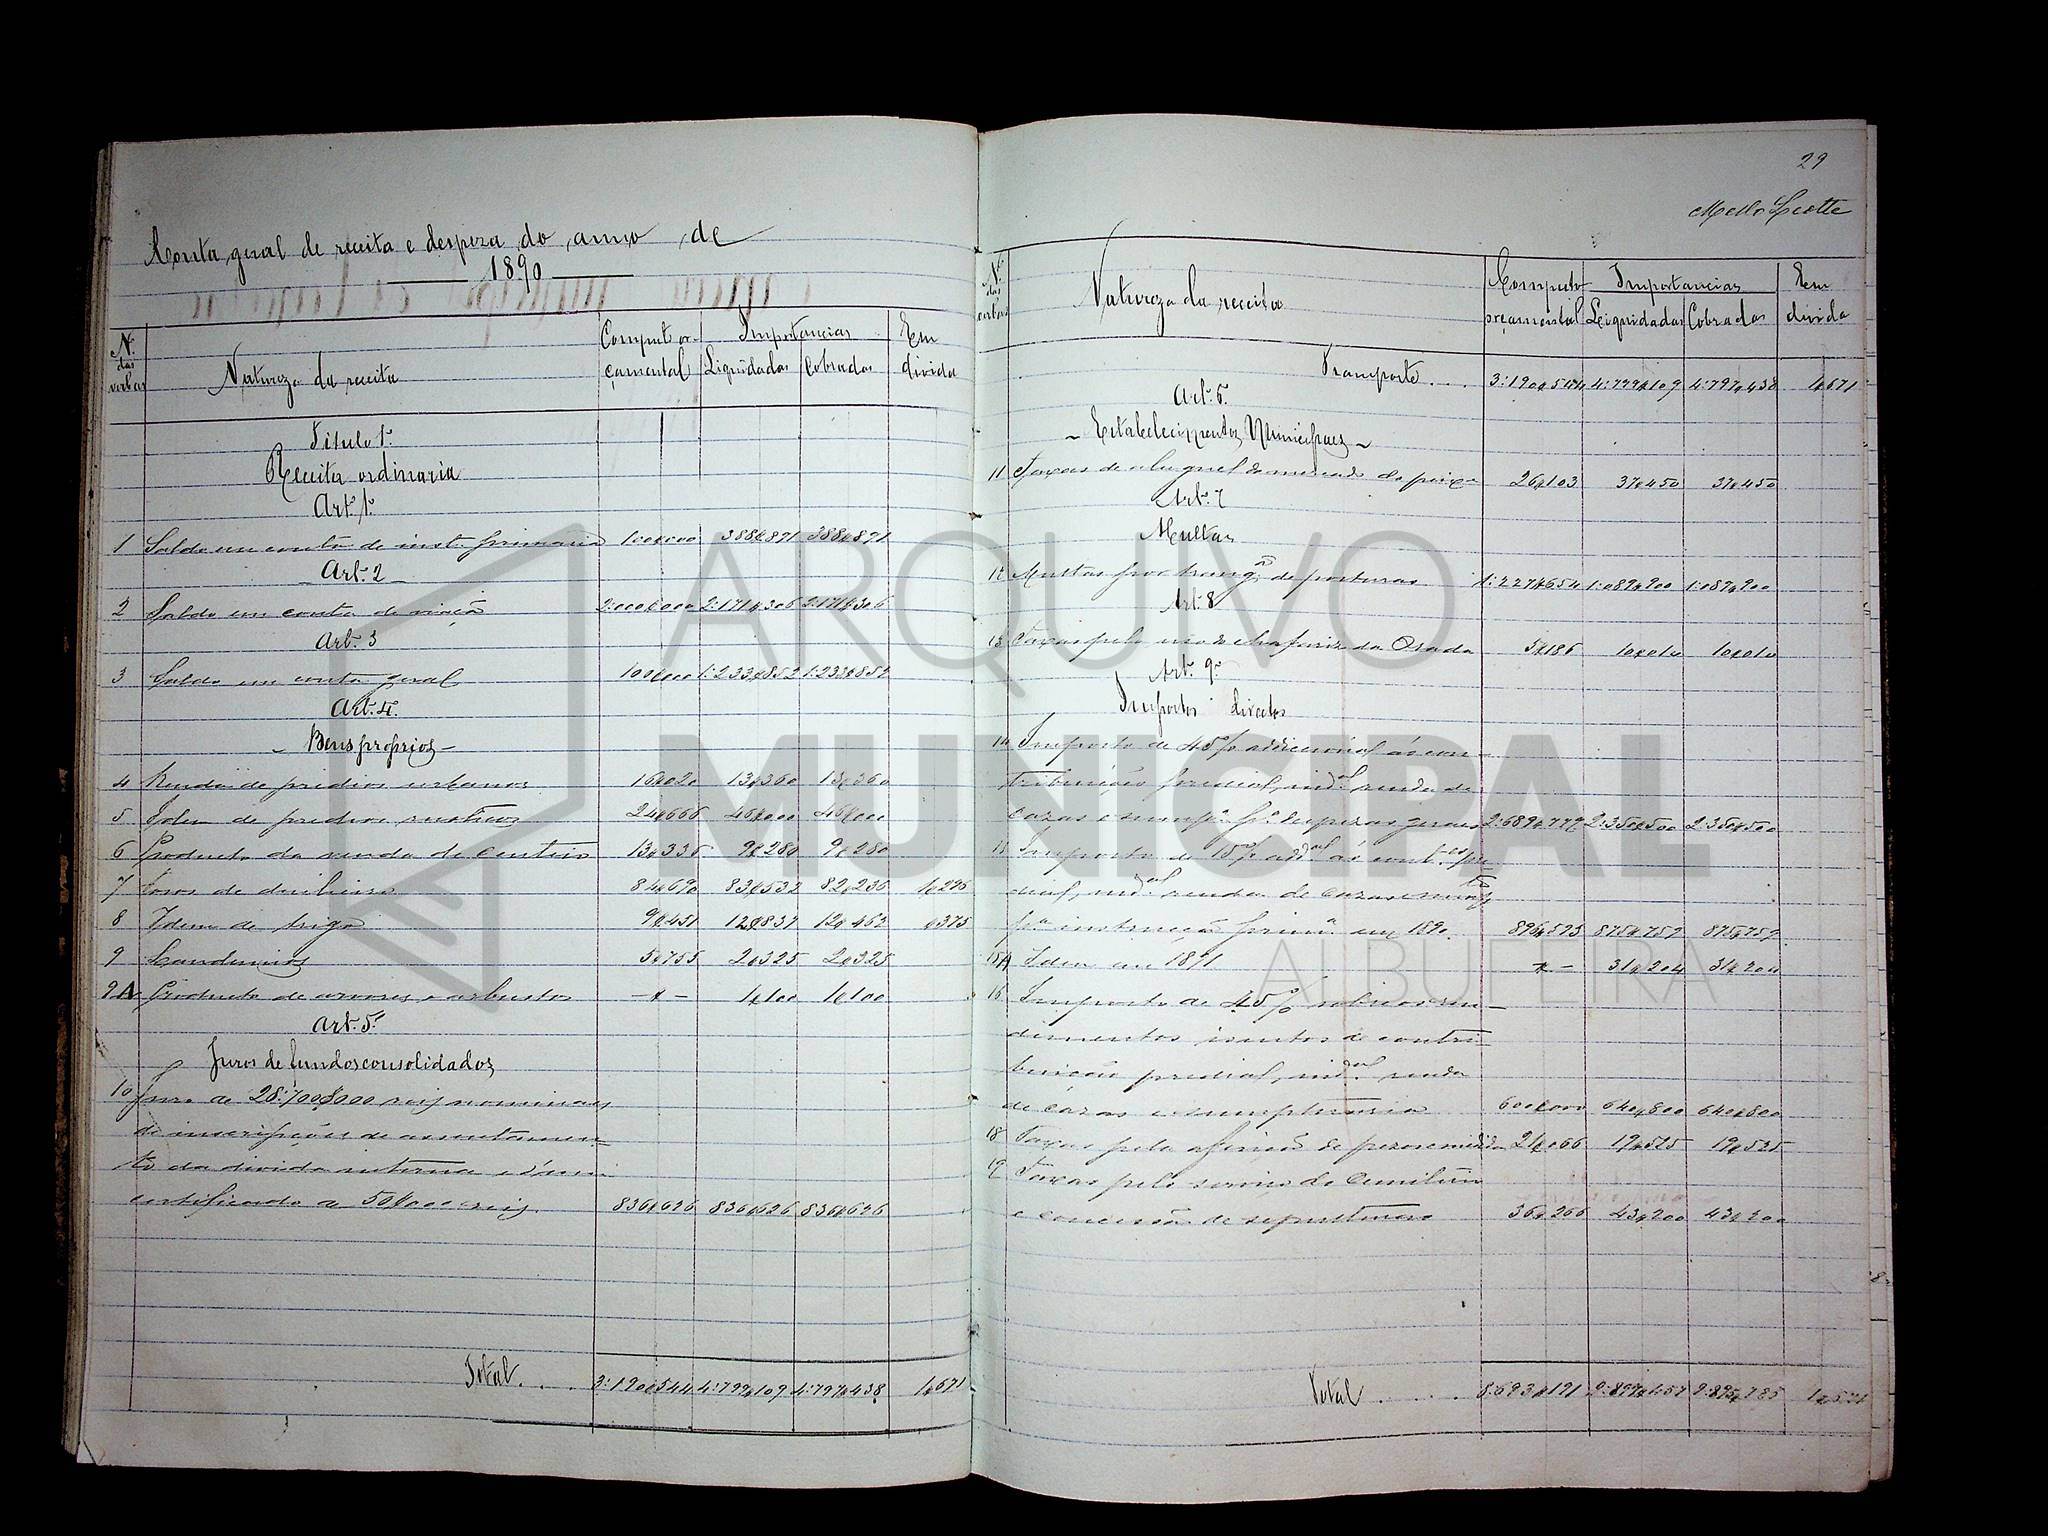 Conta geral de receita e despeza do anno de
1890
Nº das verbas
Natureza da receita
Computo orçamental
Importancias
Liquidadas
Cobradas
Em divida
Titulo 1º
Receita ordinaria
Artº 1º
1 Saldo em conta de inst. primaria 100$000 388$871 388$871
Artº 2
2 Saldo em conta de viação 2:000$000 2:171$306 2:171$306
Artº 3
3 Saldo em conta geral 100$000 1:233$852 1:233$852
Artº 4º
Bens proprios
4 Renda de predios urbanos 16$020 13$360 13$360
5 Idem de predios rusticos 24$666 46$000 46$000
6 Producto da renda de Centeio 13$336 9$280 9$280
7 Foros de dinheiro 84$690 83$532 82$236 1$296
8 Idem de trigo 9$451 12$837 12$462 $375
9 Laudemios 5$755 2$325 2$325
9A Producto de arvores e arbustos 1$100 1$100
Artº 5º
Juros de fundos consolidados
10 Juro de 28:700$000 reis nominaes
de inscripções de assentamen-
to da divida interna e d'um
certificado de 50$000 reis 836$626 836$626 836$626
Total 3:190$544 4:799$109 4:797$438 1$671
29
Mello Leotte
Nº das verbas
Natureza da receita
Computo orçamental
Importancias
Liquidadas
Cobradas
Em divida
Transporte 3:190$544 4:799$109 4:797$438 1$671
Artº 6º
Estabelecimentos Municipaes
11 Taxas de aluguel do mercado do peixe 26$103 37$450 37$450
Artº 7
Multas
12 Multas por transgão de posturas 1:227$654 1:089$900 1:089$900
Artº 8
13 Taxas pelo uso do chafariz da Orada 5$186 10$010 10$010
Artº 9º
Impostos directos
14 Imposto de 45% addicional ás con-
tribuições predial, indal renda de
cazas e sumpª pª despezas geraes 2:689$779 2:350$500 2:350$500
15 Imposto de 15% addal ás contes pre-
dial, indal renda de cazas e sumpta
pª instrucção primª em 1890 896$593 875$759 875$759
15A Idem em 1891 31$204 31$204
16 Imposto de 45% sobre os ren-
dimentos isentos de contri-
buição predial, indal renda
de cazas e sumptuaria 600$000 640$800 640$800
18 Taxas pela aferição de pezos e medidas 21$066 19$525 19$525
19 Taxas pelo serviço do Cemiterio
e concessão de sepulturas 36$266 43$200 43$200
Total 8:693$191 9:897$457 9:895$785
ARQUIVO
MUNICIPAL
ALBUFEIRA